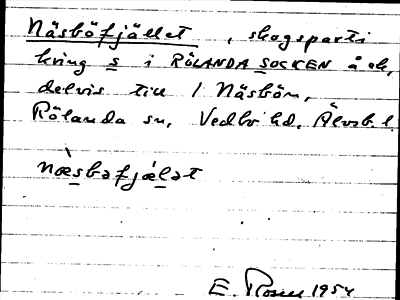 Näsböfjället, skogsparti
kring s i RÖLANDA SOCKEN å ek,
delvis till 1 Näsbön,
Rölanda sn, Vedbo hd. Älvsb. l.
næ̀sbəfjæ̀lət
E. Rosell 1954